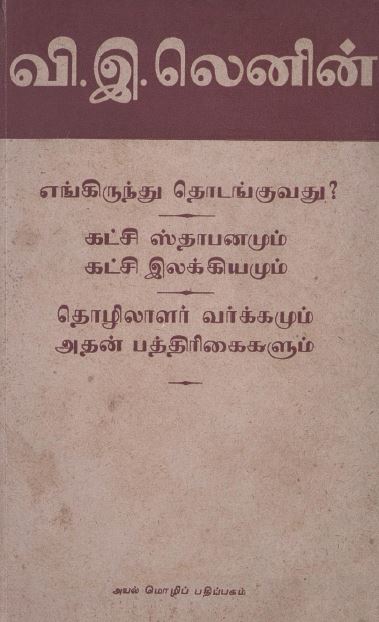 வி.இ.லெனின்
எங்கிருந்து தொடங்குவது?
கட்சி ஸ்தாபனமும்
கட்சி இலக்கியமும்
தொழிலாளர் வர்க்கமும்
அதன் பத்திரிகைகளும்
அயல் மொழிப் பதிப்பகம்